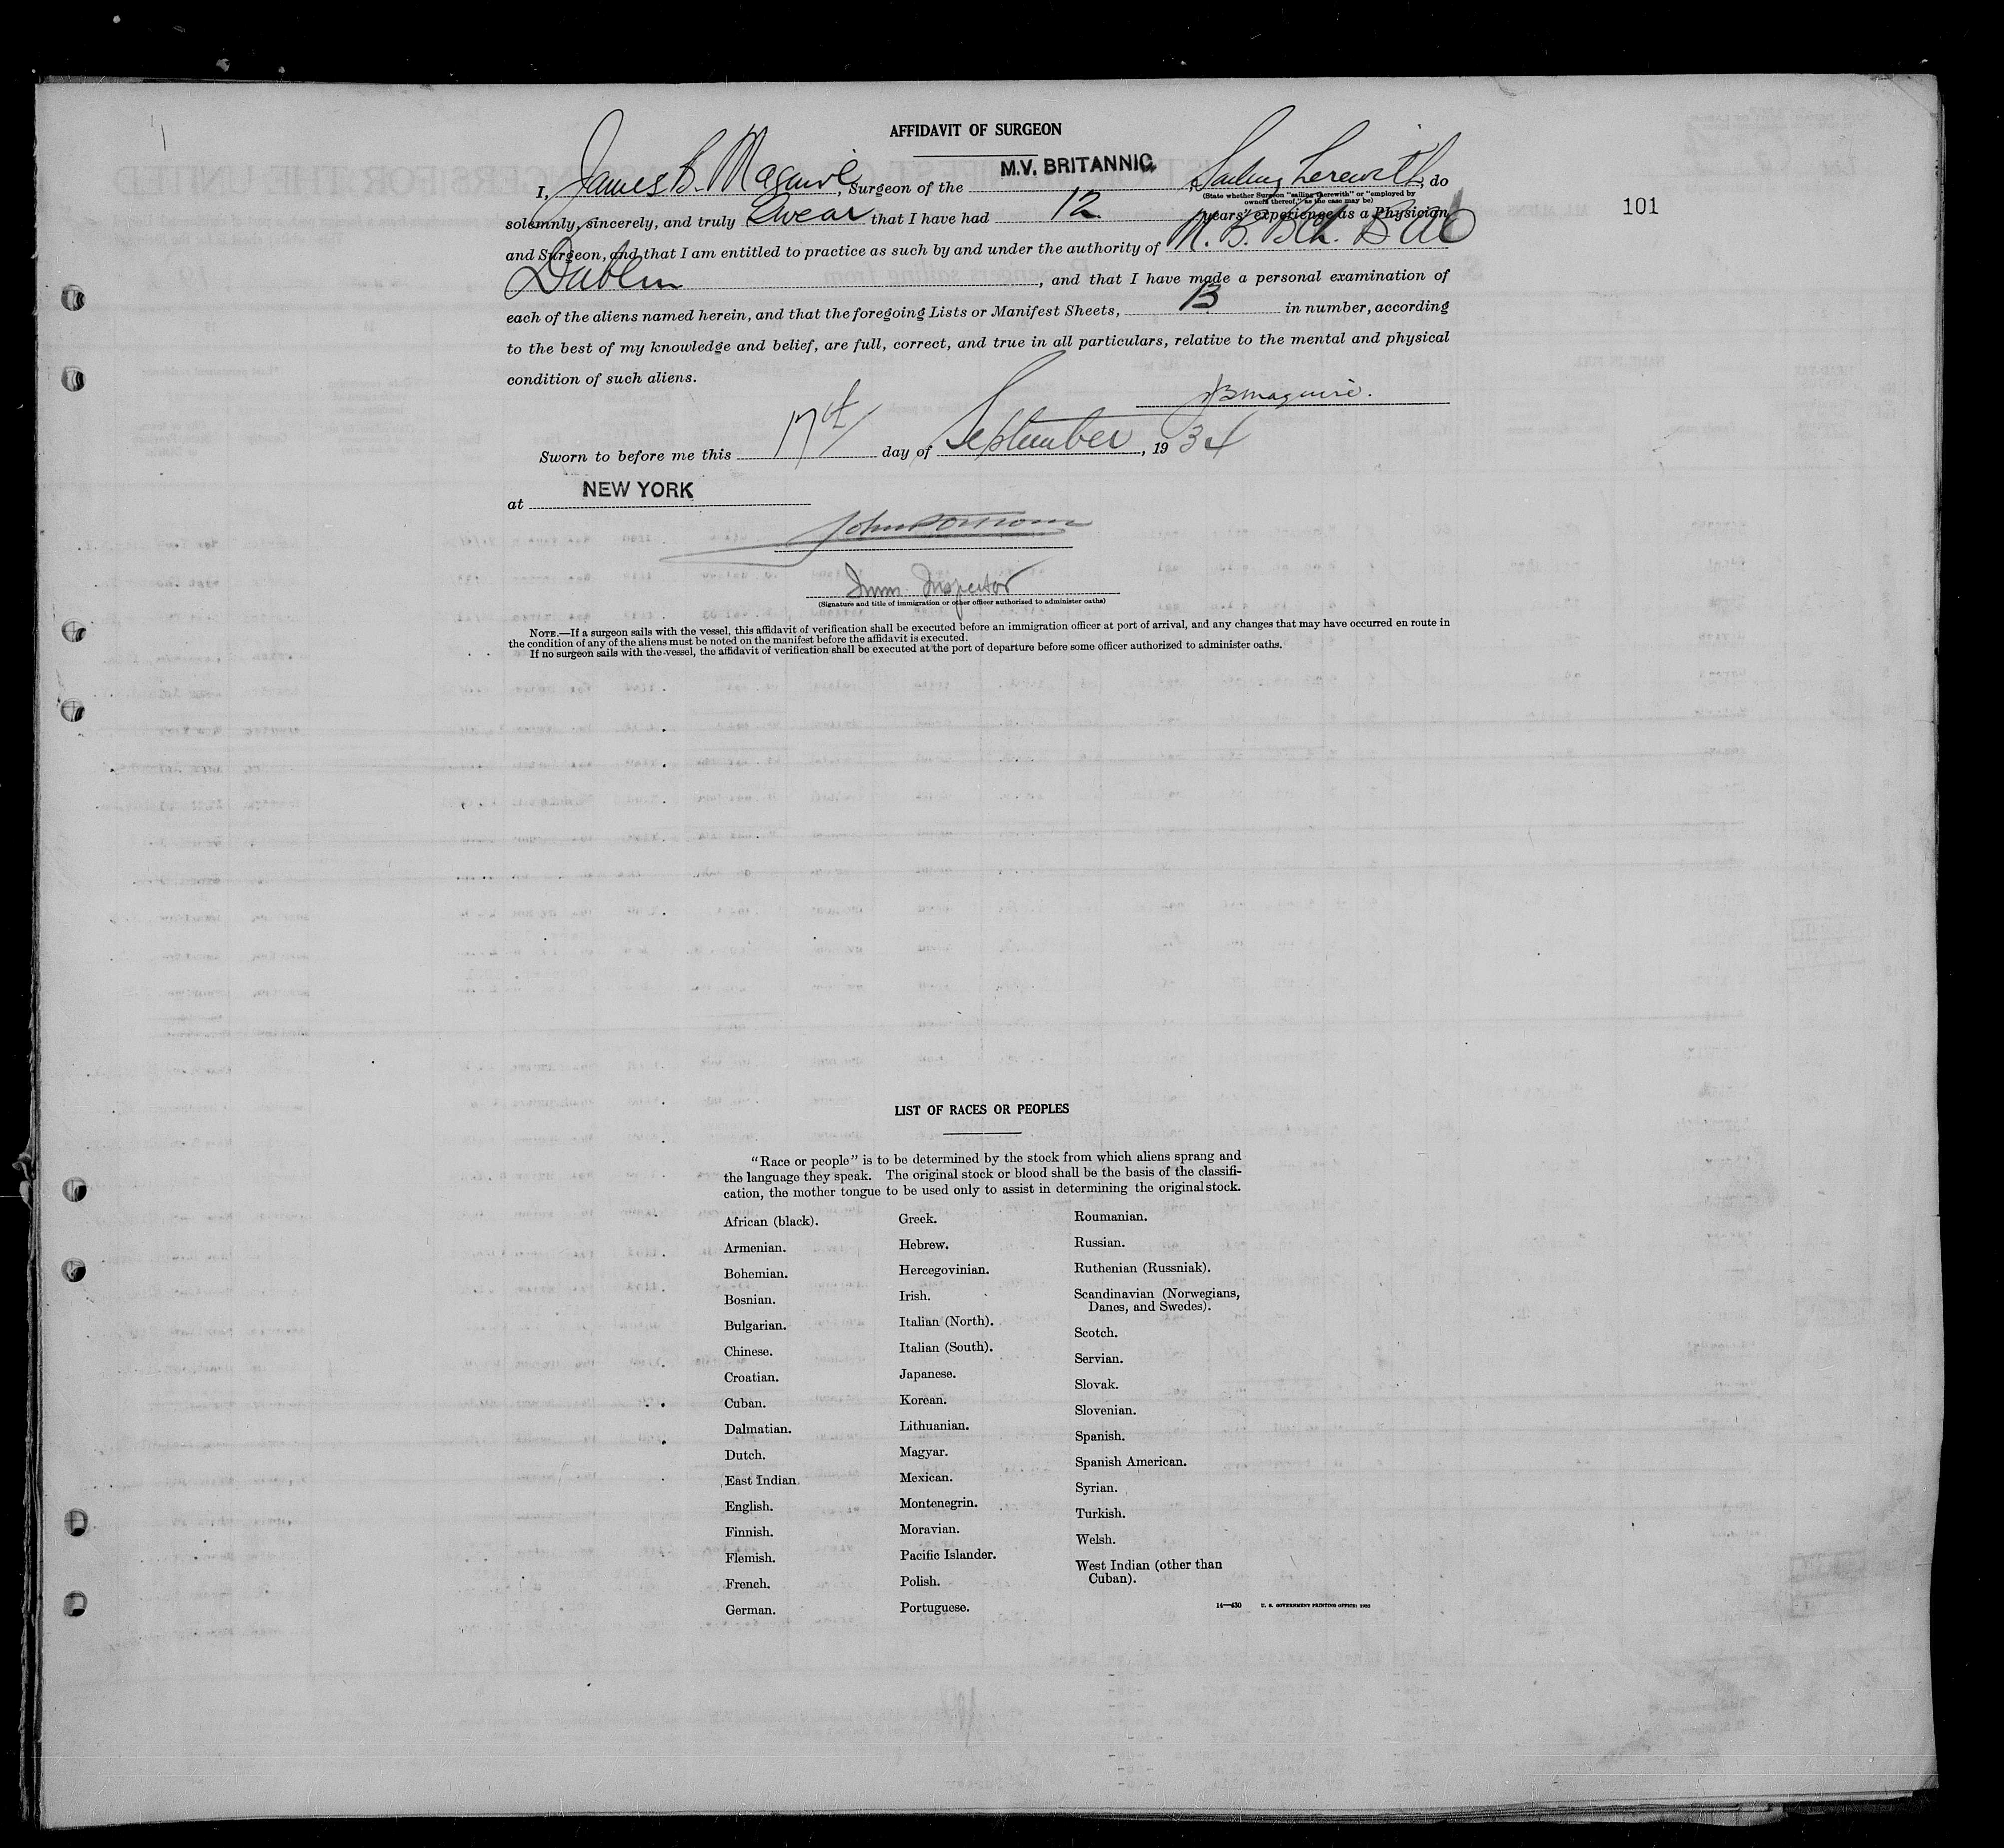 AFFIDAVIT OF SURGEON
I, James B. Maguire, Surgeon of the M.V. BRITANNIC, Sailing herewith, do
(State whether Surgeon "sailing therewith" or "employed by
owners thereof," as the case may be)
solemnly, sincerely, and truly Swear that I have had 12 years' experience as a Physician
and Surgeon, and that I am entitled to practice as such by and under the authority of M.B. BCh. BAO
Dublin, and that I have made a personal examination of
each of the aliens named herein, and that the foregoing Lists or Manifest Sheets, 13 in number, according
to the best of my knowledge and belief, are full, correct, and true in all particulars, relative to the mental and physical
condition of such aliens.
JBMaguire.
Sworn to before me this 17th day of September, 1934
at NEW YORK
John
Imm. Inspector
(Signature and title of immigration or other officer authorized to administer oaths)
NOTE.—If a surgeon sails with the vessel, this affidavit of verification shall be executed before an immigration officer at port of arrival, and any changes that may have occurred en route in
the condition of any of the aliens must be noted on the manifest before the affidavit is executed.
If no surgeon sails with the vessel, the affidavit of verification shall be executed at the port of departure before some officer authorized to administer oaths.
101
LIST OF RACES OR PEOPLES
"Race or people" is to be determined by the stock from which aliens sprang and
the language they speak. The original stock or blood shall be the basis of the classifi-
cation, the mother tongue to be used only to assist in determining the original stock.
African (black).
Armenian.
Bohemian.
Bosnian.
Bulgarian.
Chinese.
Croatian.
Cuban.
Dalmatian.
Dutch.
East Indian.
English.
Finnish.
Flemish.
French.
German.
Greek.
Hebrew.
Hercegovinian.
Irish.
Italian (North).
Italian (South).
Japanese.
Korean.
Lithuanian.
Magyar.
Mexican.
Montenegrin.
Moravian.
Pacific Islander.
Polish.
Portuguese.
Roumanian.
Russian.
Ruthenian (Russniak).
Scandinavian (Norwegians,
Danes, and Swedes).
Scotch.
Servian.
Slovak.
Slovenian.
Spanish.
Spanish American.
Syrian.
Turkish.
Welsh.
West Indian (other than
Cuban).
14—430 U. S. GOVERNMENT PRINTING OFFICE: